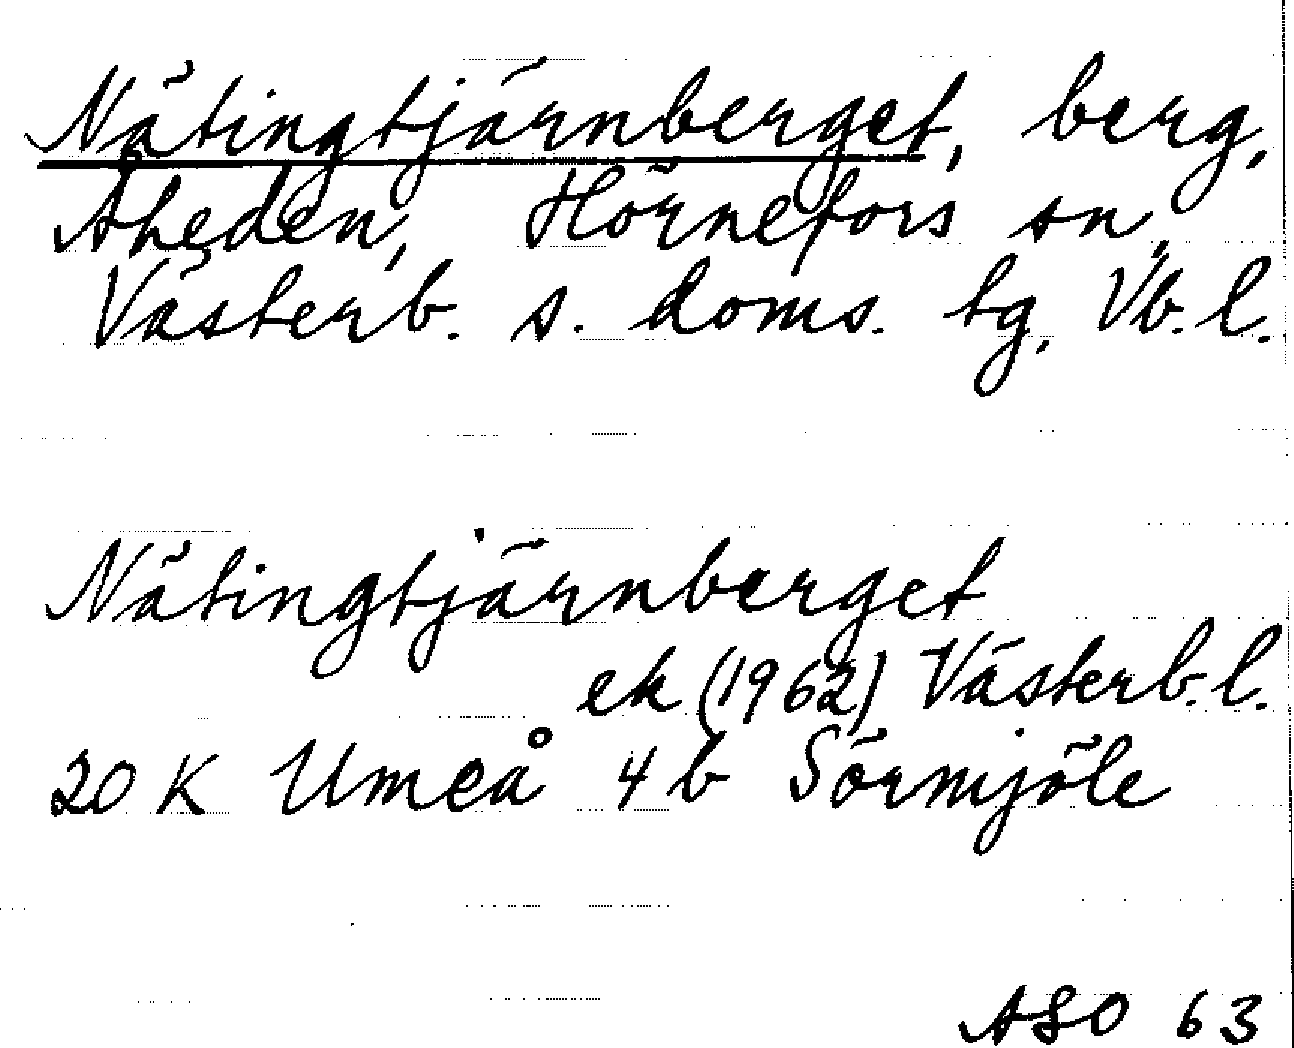 Nätingtjärnberget, berg,
Åheden, Hörnefors sn,
Västerb. s. doms. tg, Vb. l.
Nätingtjärnberget
ek (1962) Västerb. l.
20 K Umeå 4 b Sörmjöle
ASO 63